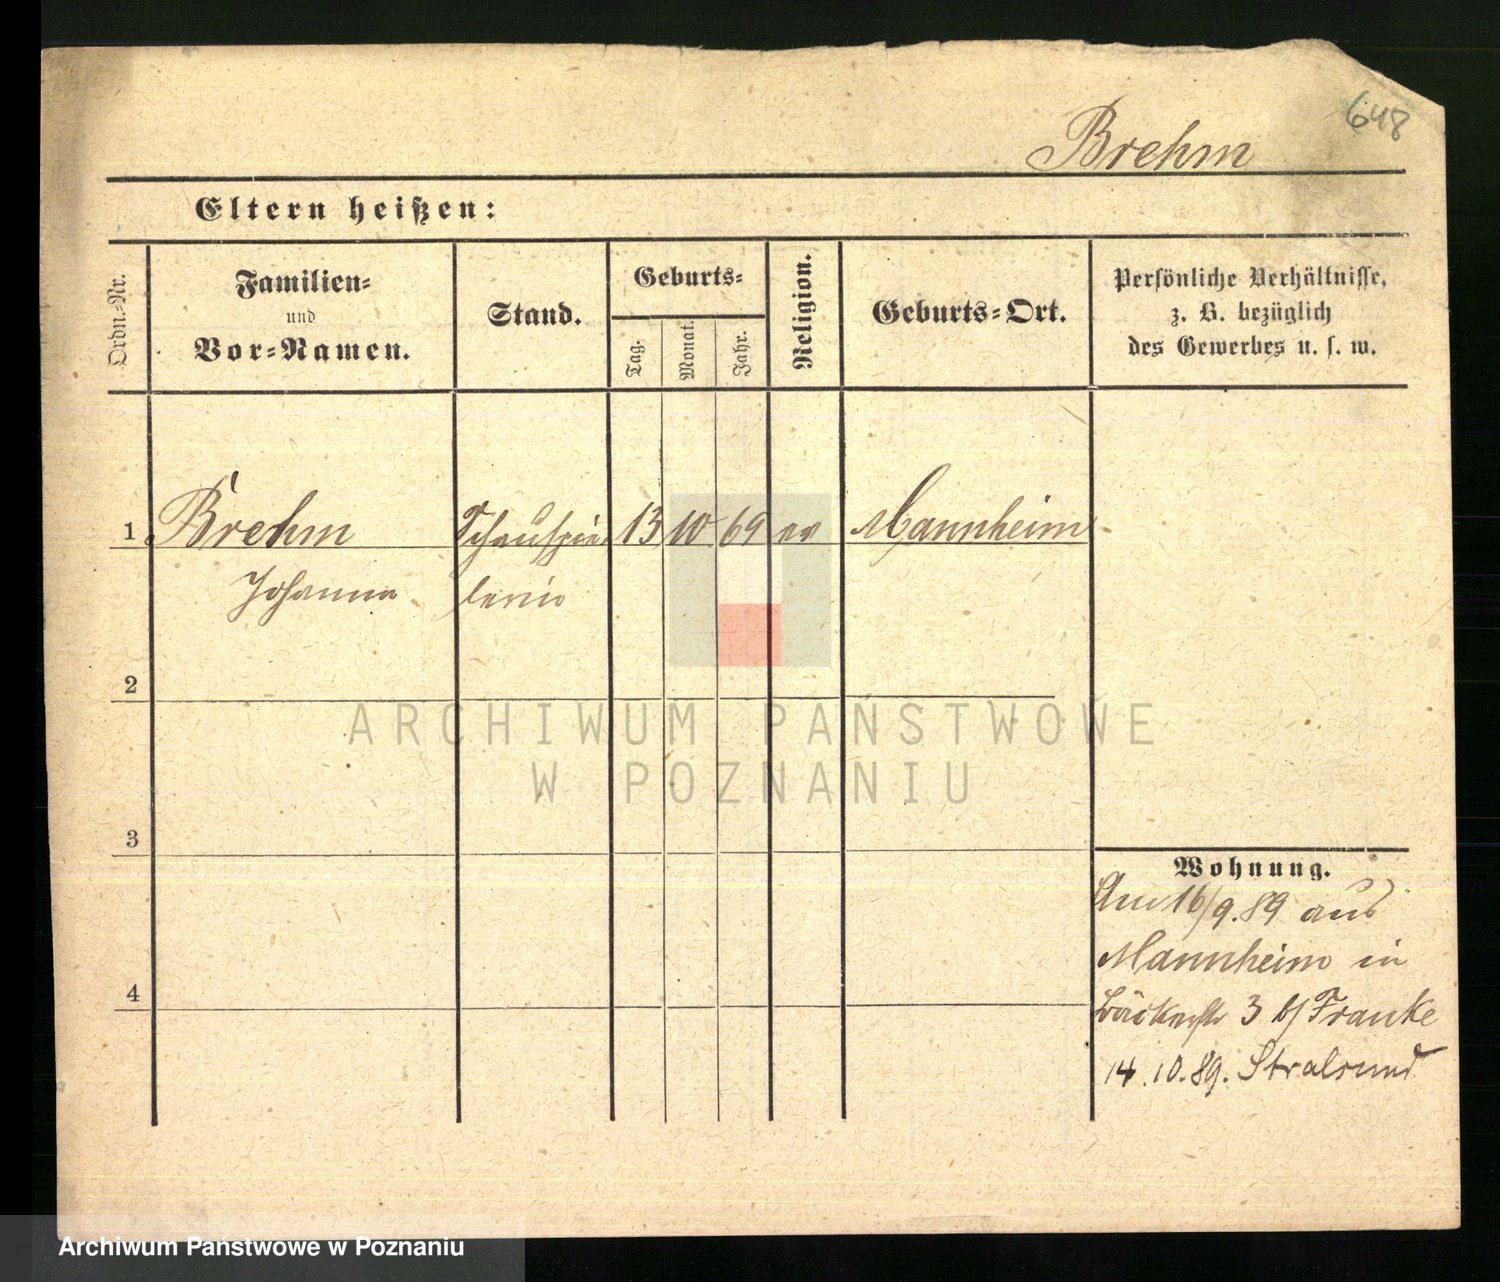 648
Brehm
Eltern heißen:
Ordn.-Nr.
Familien-
und
Vor-Namen.
Stand.
Geburts-
Tag.
Monat.
Jahr.
Religion.
Geburts-Ort.
Persönliche Verhältnisse,
z. B. bezüglich
des Gewerbes u. s. w.
1 Brehm Schauspie- 13 10 69 ev Mannheim
Johanna lerin
2
ARCHIWUM PAŃSTWOWE
W POZNANIU
3
4
Wohnung.
Am 16/9.89 aus
Mannheim in
Bäckerstr 3 b/ Franke
14.10.89. Stralsund
Archiwum Państwowe w Poznaniu